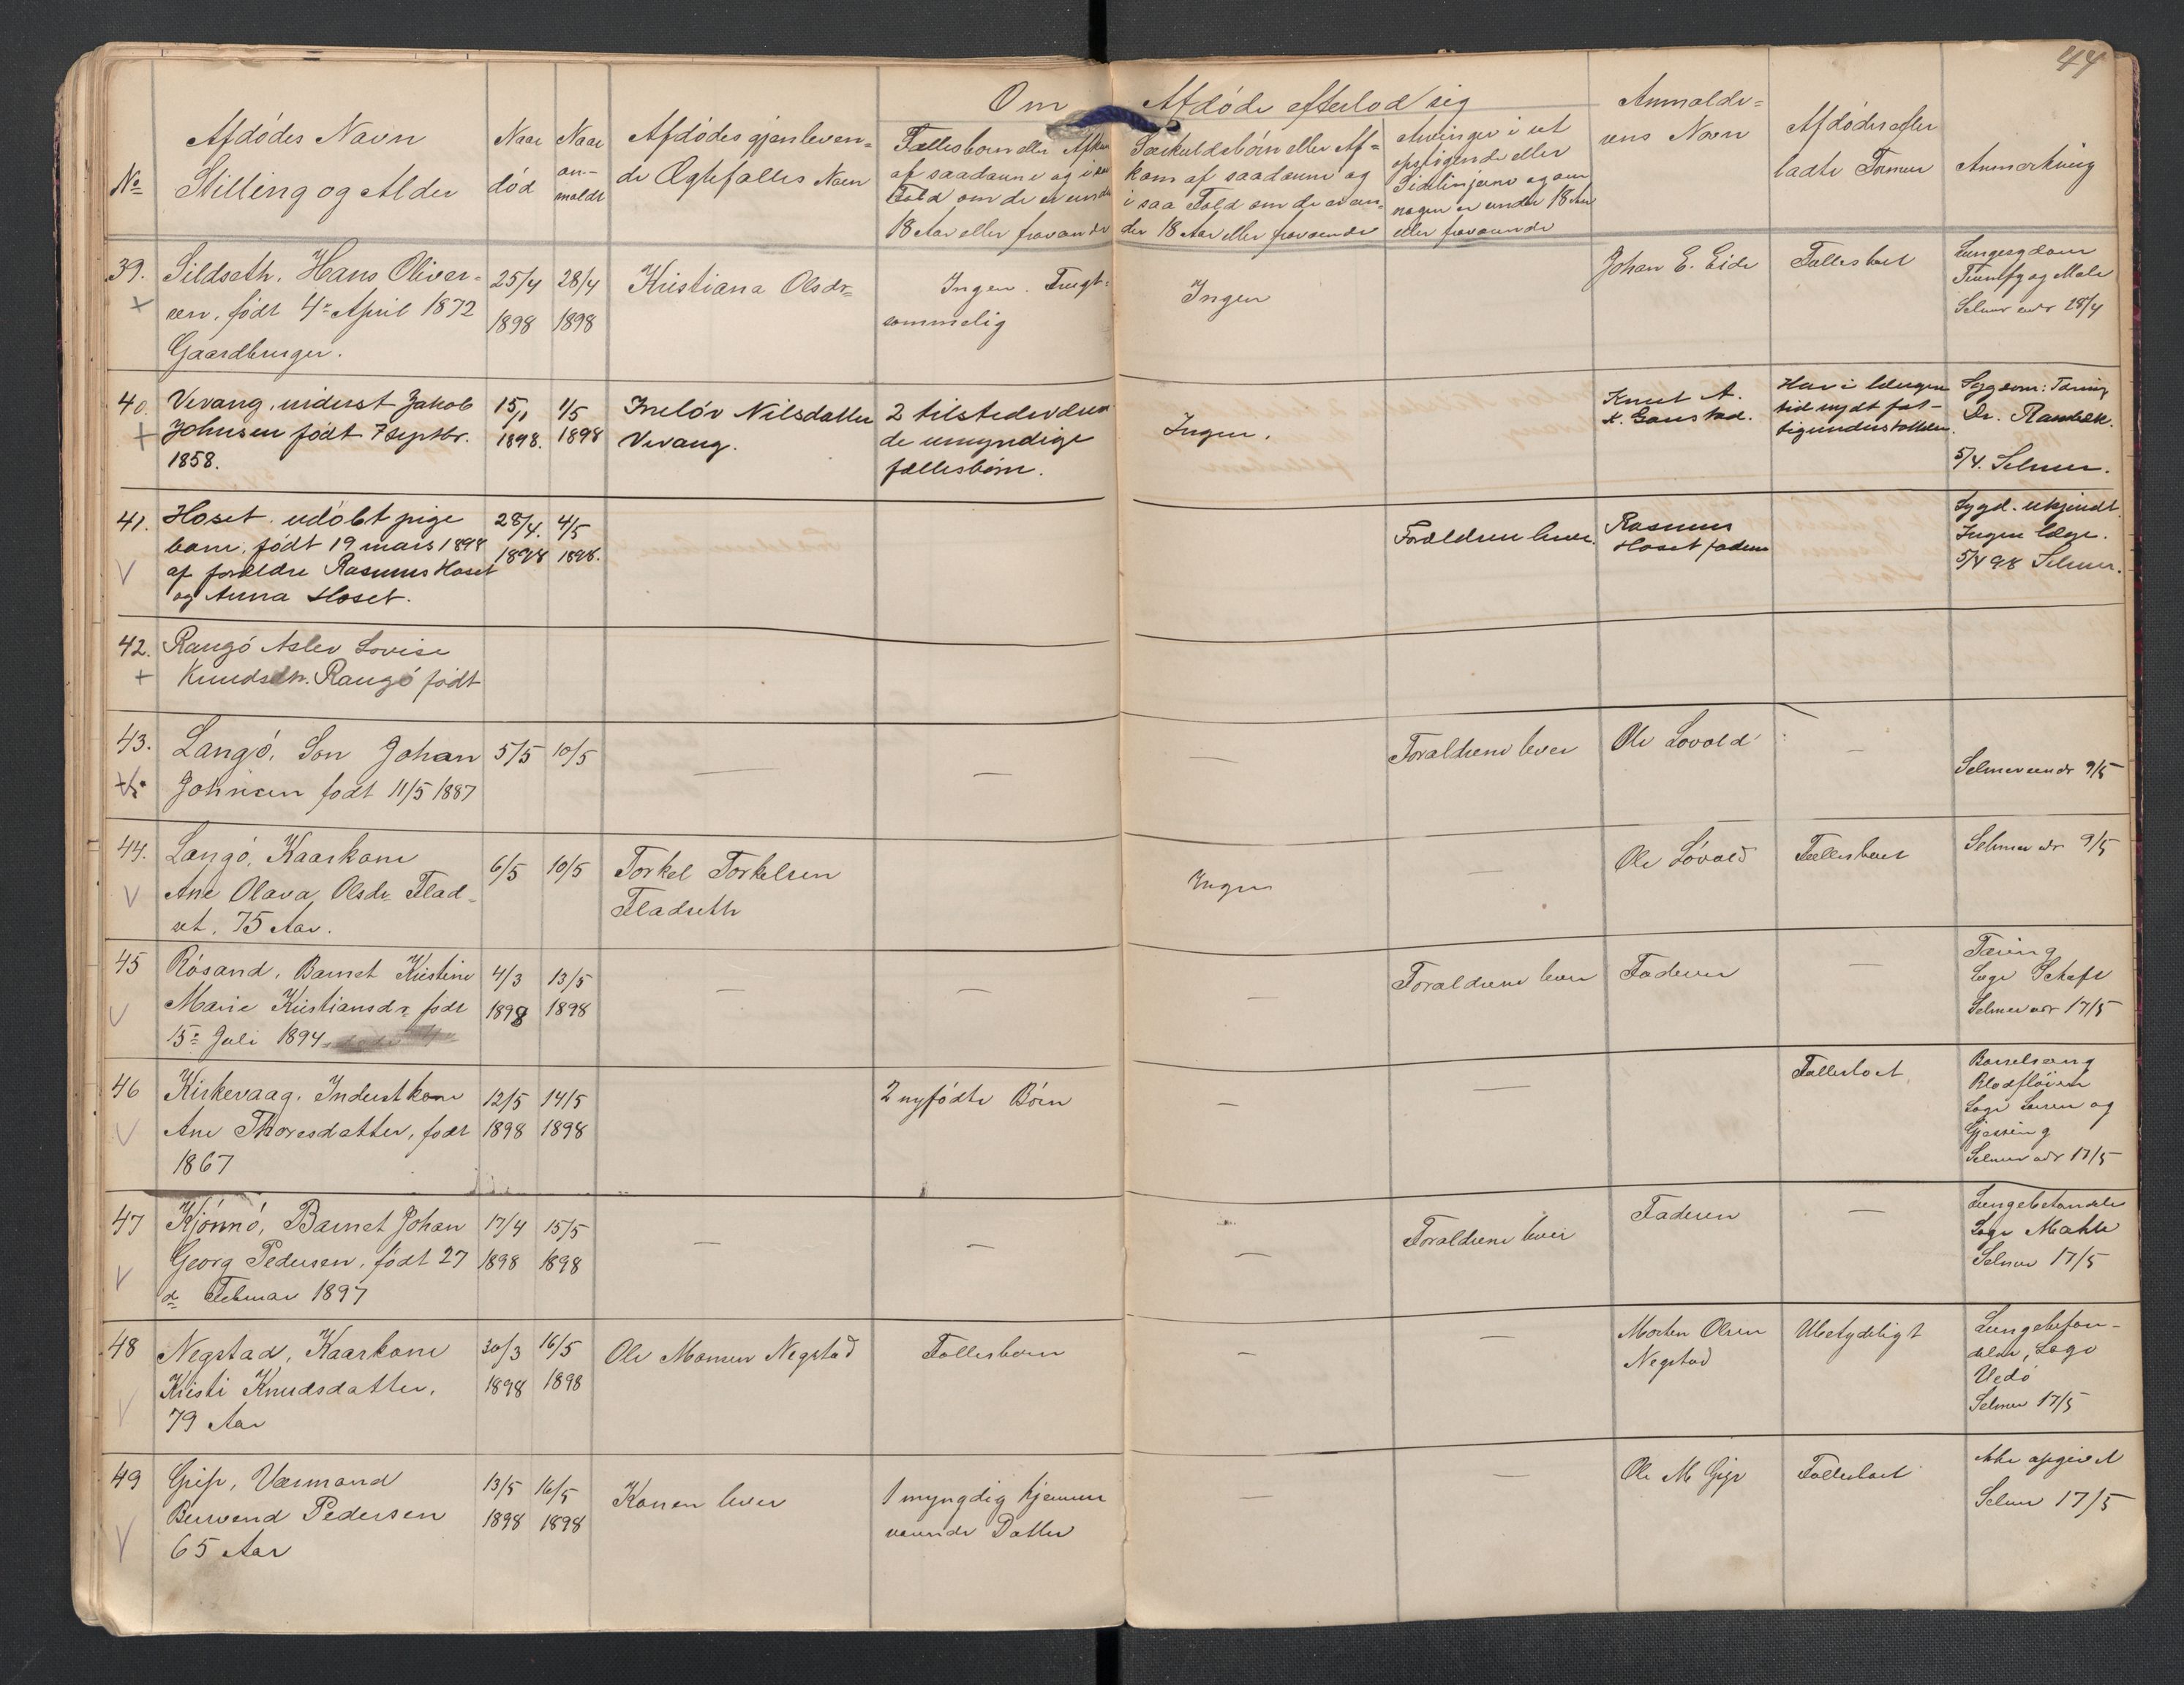 44
Om Afdöde efterlod sig
No
Afdödes Navn
Stilling og Alder
Naar
död
Naar
an-
meldt
Afdödes gjenleven-
de Ægtefælles Navn
Fællesbörn eller Afkom
af saadanne og i saa
Fald om de er under
18 Aar eller fraværende
Særkuldsbörn eller Af-
kom af saadanne og
i saa Fald om de er un-
der 18 Aar eller fraværende
Arvinger i ret
opstigende eller
Sidelinjerne og om
nogen er under 18 Aar
eller fraværende
Anmelde-
rens Navn
Afdödes efter
ladte Formue
Anmerkning
39.
Sildseth, Hans Oliver-
sen, födt 4 April 1872
Gaardbruger.
25/4
1898
28/4
1898
Kristiana Olsdr
Ingen. Frugt-
sommelig
Ingen
Johan E. Eide
Fællesboet
Lungesygdom
Selmer 28/4
40.
Vevang, inderst Jakob
Johnsen födt 7 Septbr.
1858.
15/1
1898.
1/5
1898
Nilsdatter
Vevang.
2 tilstedeværen
de umyndige
fællesbörn.
Ingen.
Knut A.
K. Gaustad.
Har i længere
tid nydt fat-
tigunderstöttelse.
Sygdom: Tæring
Dr.
5/4. Selmer.
41.
Hoset. udöbt pige
barn, födt 19 mars 1898
af forældre Rasmus Hoset
og Anna Hoset.
28/4.
1898
4/5
1898.
Forældren lever.
Rasmus
Hoset faderen
Sygd. ukjendt.
Ingen læge.
5/4 98 Selmer.
42.
Rangö Aslev Lovise
Knudsdtr. Rangö födt
43.
Langö, Sön Johan
Johnsen födt 11/5 1887
5/5
10/5
Forældrene lever
Ole Lovold
Selmer 9/5
44.
Langö, Kaarkone
Ane Olava Olsdr Flad-
set, 75 Aar.
6/5
10/5
Torkel Torkelsen
Fladseth
Ingen
Ole Lövold
Fællesboet
Selmer 9/5
45
Rösand, Barnet Kristine
Marie Kristiansdr födt
15 Juli 1894
4/3
1898
13/5
1898
Forældrene lever
Faderen
Tæring
Læge Schaft
Selmer 17/5
46
Kirkevaag, Inderstkone
Ane Thoresdatter, födt
1867
12/5
1898
14/5
1898
2 nyfödte Börn
Fællesboet
Barselseng
Læge og
Gjessing
Selmer 17/5
47
Kjönnö, Barnet Johan
Georg Pedersen, födt 27
de Februar 1897
17/4
1898
15/5
1898
Forældrene lever
Faderen
Lungebetændelse
Læge
Selmer 17/5
48
Negstad, Kaarkone
Kristi Knudsdatter,
79 Aar
30/3
1898
16/5
1898
Ole Monsen Negstad
Fællesbörn
Morten Olsen
Negstad
Ubetydeligt
Læge
Uedö
Selmer 17/5
49
Grip, Værmand
Pedersen
65 Aar
13/5
1898
16/5
1898
Konen lever
1 myngdig hjemme
værende Datter
Ole M Grip
Fællesboet
Ikke opgivet
Selmer 17/5